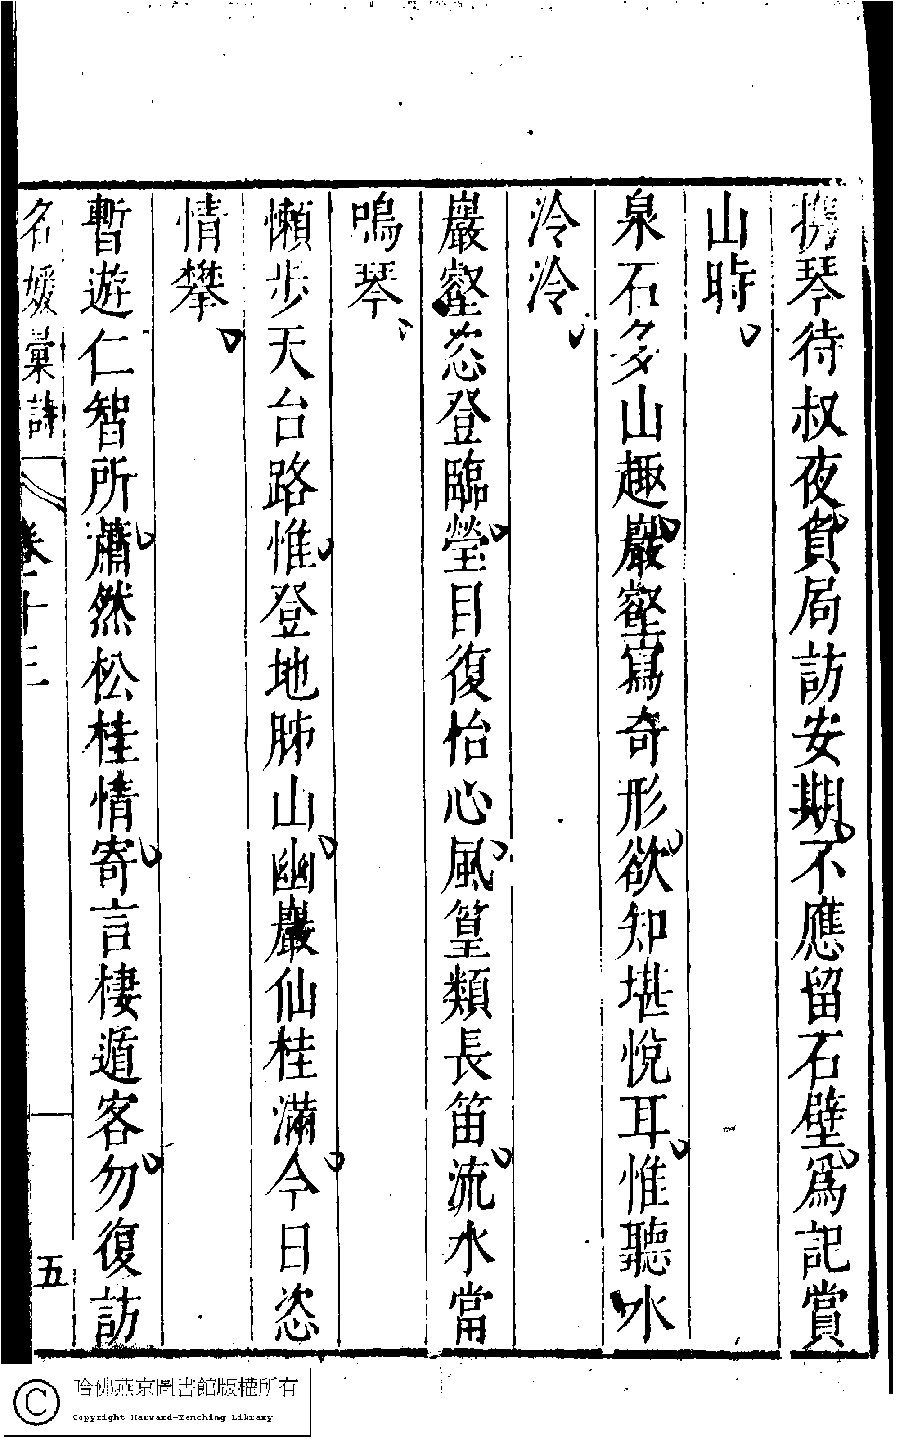 攜琴待叔夜負局訪安期不應留石壁爲記賞
山時
泉石多山趣巖壑寫奇形欲知堪悅耳惟聽水
泠泠
巖壑恣登臨瑩目復怡心風篁類長笛流水當
鳴琴
懶步天台路惟登地肺山幽巖仙桂滿今日恣
情攀
暫遊仁智所蕭然松桂情寄言棲遁客勿復訪
名媛彙詩 卷十三 五
哈佛燕京圖書館版權所有
Copyright Harvard-Yenching Library